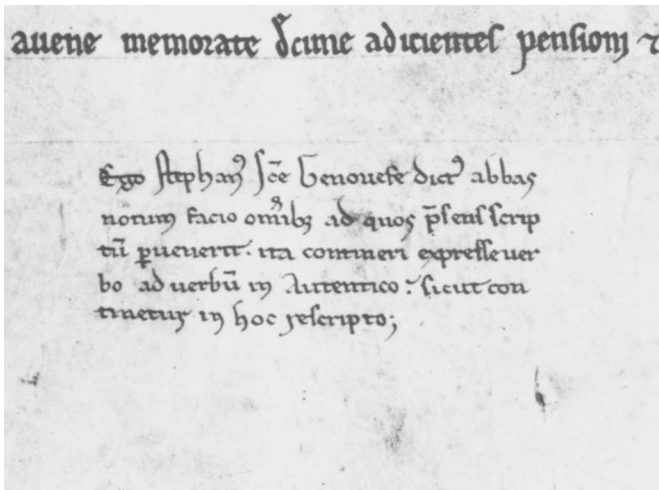 avene memorate decime adicientes pensioni ⁊
Ego stephanꝰ sc̄e Genovefe dictꝰ abbas
notum facio om̄ibꝫ ad quos p̄sens scrip
tū ꝑvenerit. ita contineri expresse ver
bo ad verbū in Autentico: sicut con
tinetur in hoc rescripto;